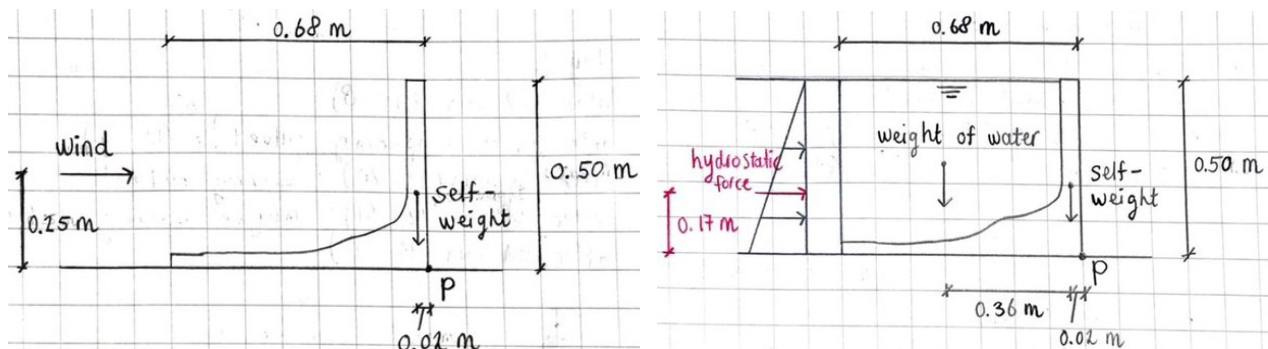 0.68 m
wind
0.50 m
self-
weight
0.25 m
P
0.02 m
0.68 m
weight of water
hydrostatic
force
0.50 m
self-
weight
0.17 m
P
0.36 m
0.02 m